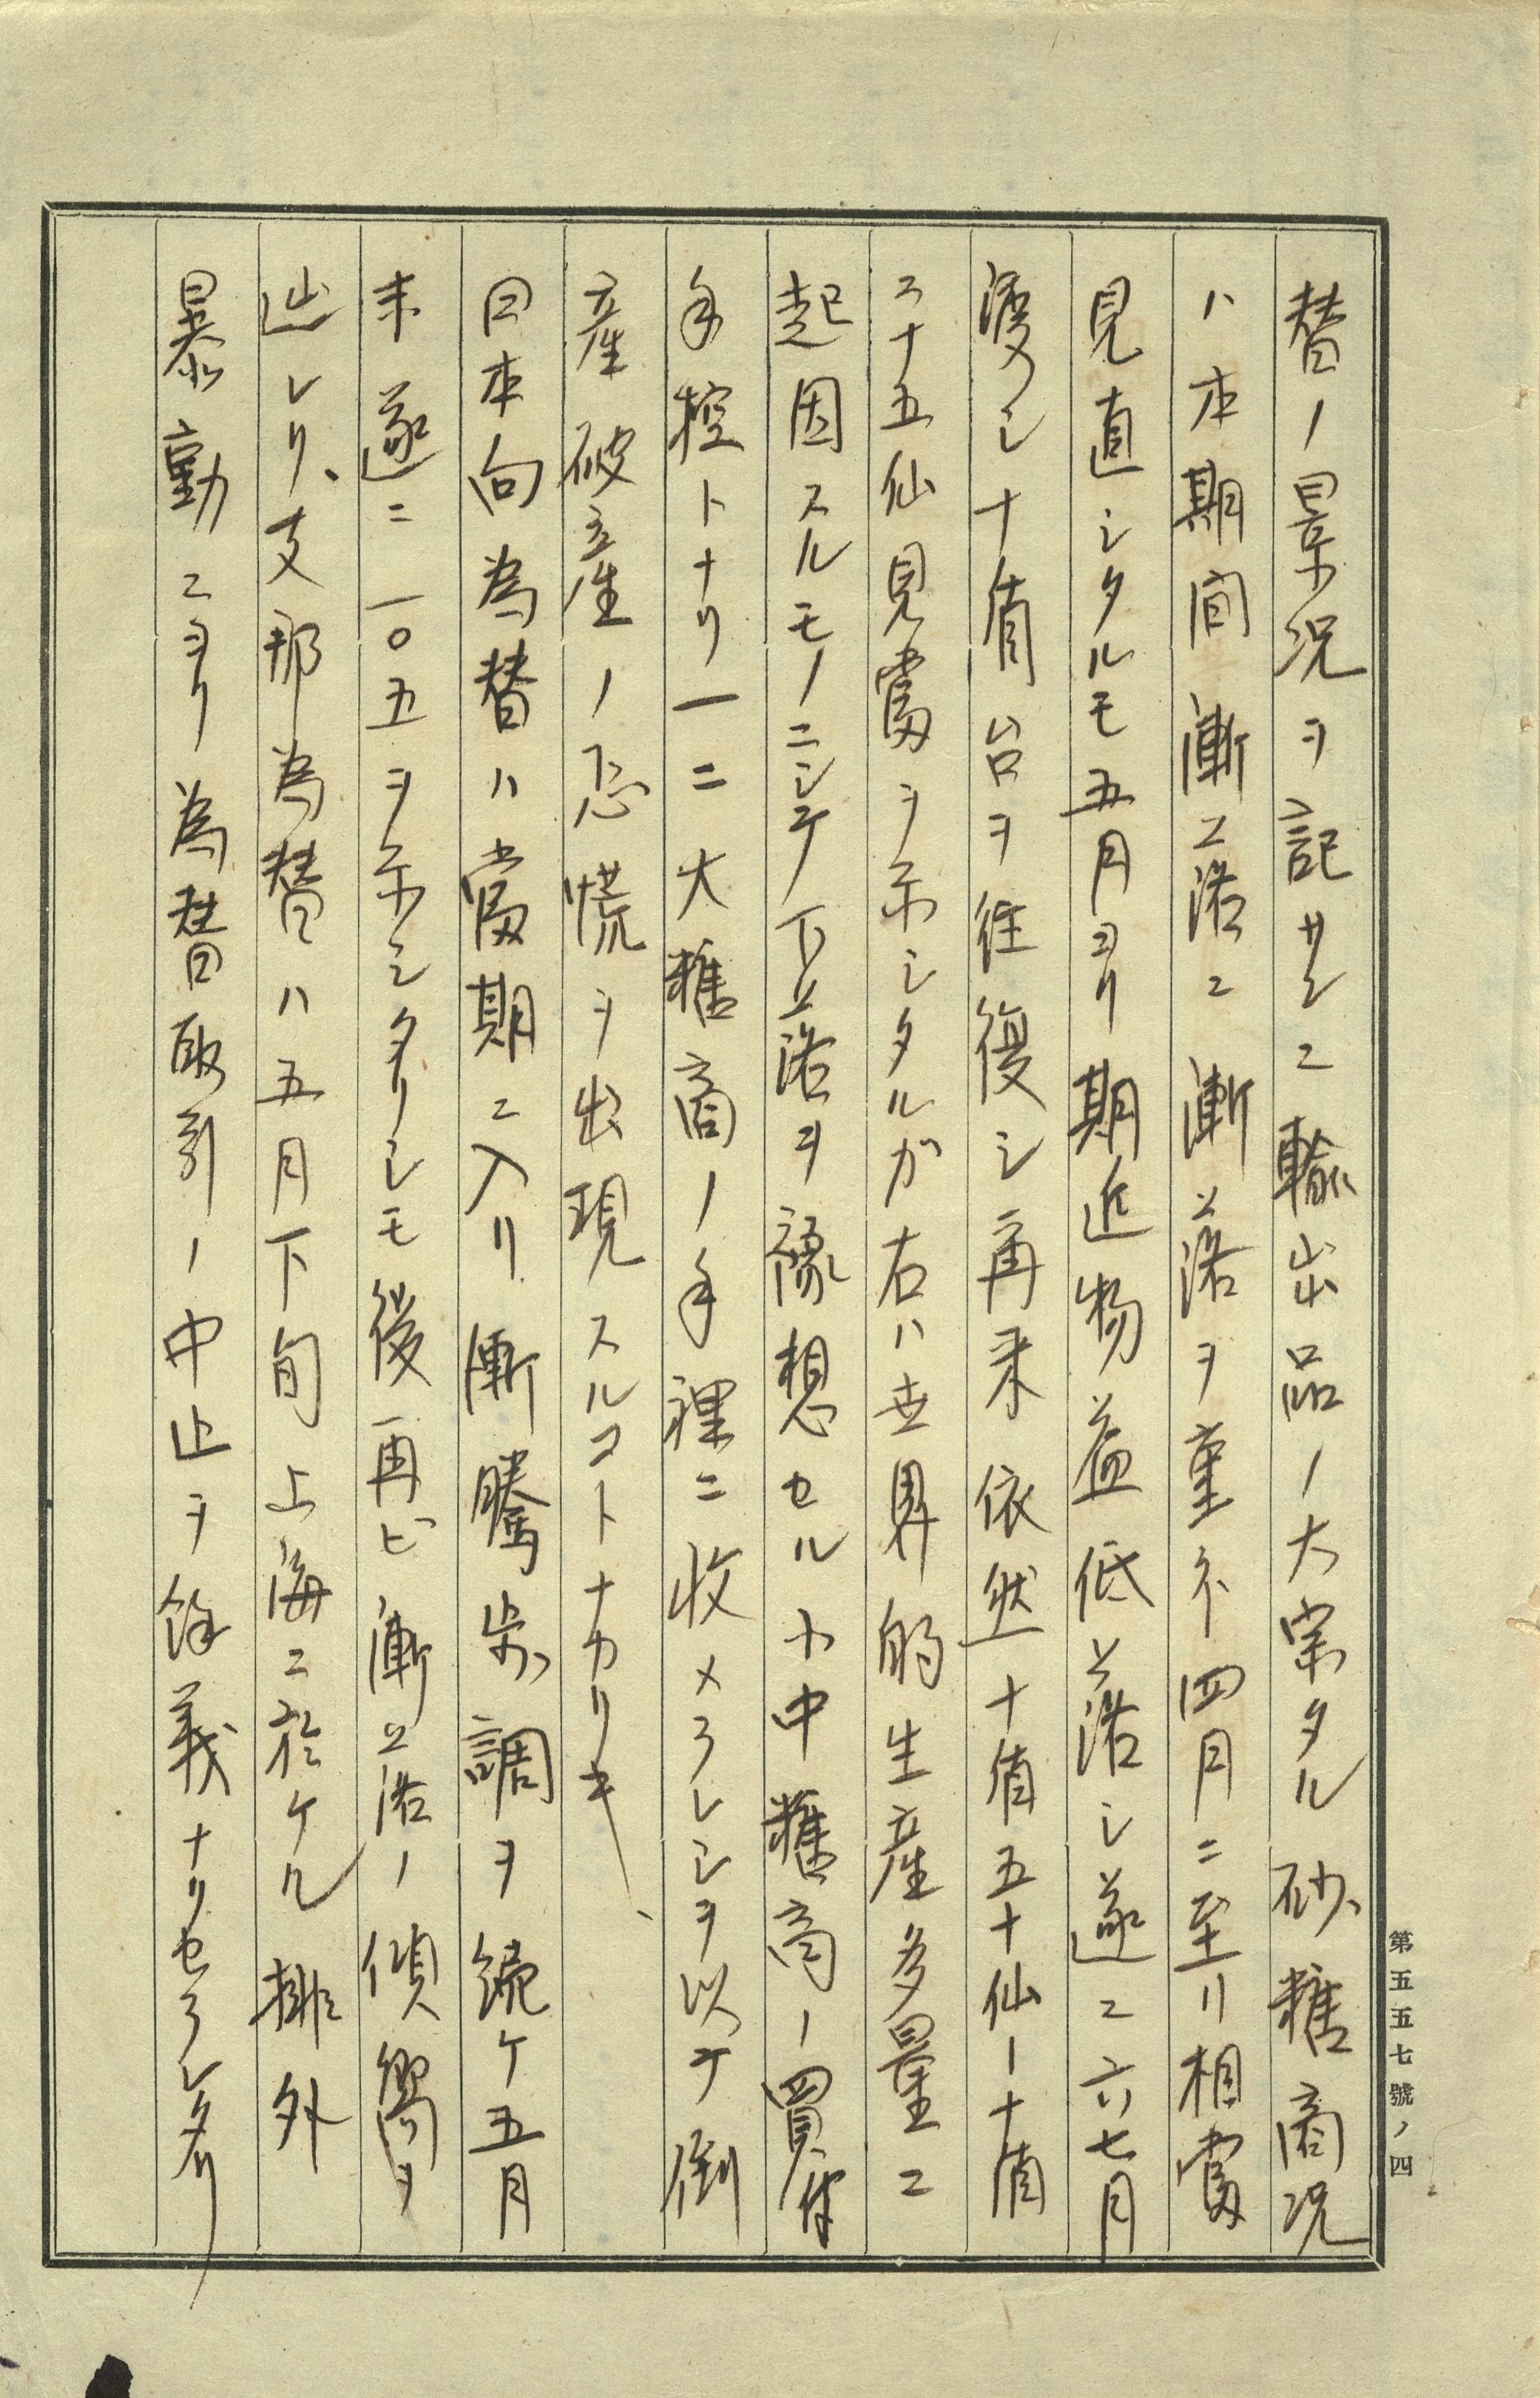 替ノ景況ヲ記サンニ輸出品ノ大宗タル砂糖商況
ハ本期間漸落ニ漸落ヲ重ネ四月ニ至リ相當
見直シタルモ五月ヨリ期近物益低落シ遂ニ六七月
渡シ十盾台ヲ往復シ再来依然十盾五十仙ー十盾
二十五仙見當ヲ示シタルガ右ハ世界的生産多量ニ
起因スルモノニシテ下落ヲ豫想セル小中糖商ノ買付
手控トナリ一ニ大糖商ノ手裡ニ收メラレシヲ以テ倒
産破産ノ恐慌ヲ出現スルコトナカリキ、
日本向為替ハ當期ニ入リ漸騰歩調ヲ続ケ五月
末遂ニ一〇五ヲ示シタリシモ後再ビ漸落ノ傾嚮ヲ
辿レリ、支那為替ハ五月下旬上海ニ於ケル排外
暴動ニヨリ為替取引ノ中止ヲ餘義ナリセラレタリ
第五五七號ノ四